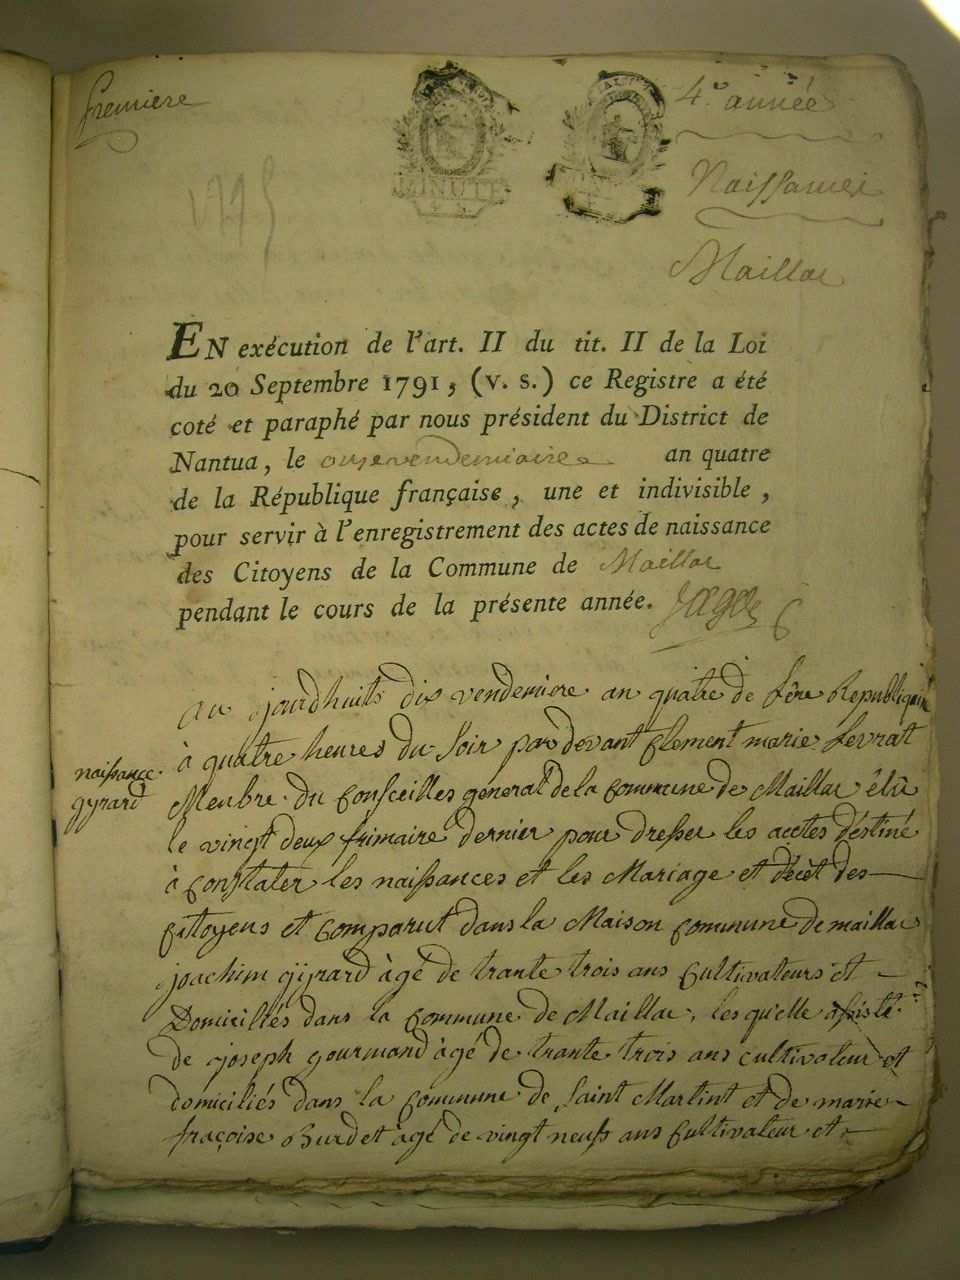 Premiere
4.e année
Naissances
Maillac
1795
MINUTE
EN exécution de l'art. II du tit. II de la Loi
du 20 Septembre 1791, (v. s.) ce Registre a été
coté et paraphé par nous président du District de
Nantua, le onze vendemiaire an quatre
de la République française, une et indivisible,
pour servir à l'enregistrement des actes de naissance
des Citoyens de la Commune de Maillac
pendant le cours de la présente année.
naissance
gyrard
au jourdhuits dix vendemiere an quatre de l'êre Republiquine
à quatre heures du soir par devant Clement marie Levrat
Menbre du Consceilles general de la Commune de Maillac élû
le vingt deux frimaire dernier pour dresser les acctes déstiné
à Constater les naissances et les Mariage et décèt des
Citoyens et Comparut dans la Maison Commune de maillac
joachim gyrard àgé de trante trois ans Cultivateurs et
Domiciliés dans la Commune de Maillac, les qu'elle assisté
de joseph gourmand àgé de trante trois ans cultivateur et
domiciliés dans la Commune de Saint Martint et de marie
fraçoise Burdet àgé de vingt neufs ans Cultivateur et